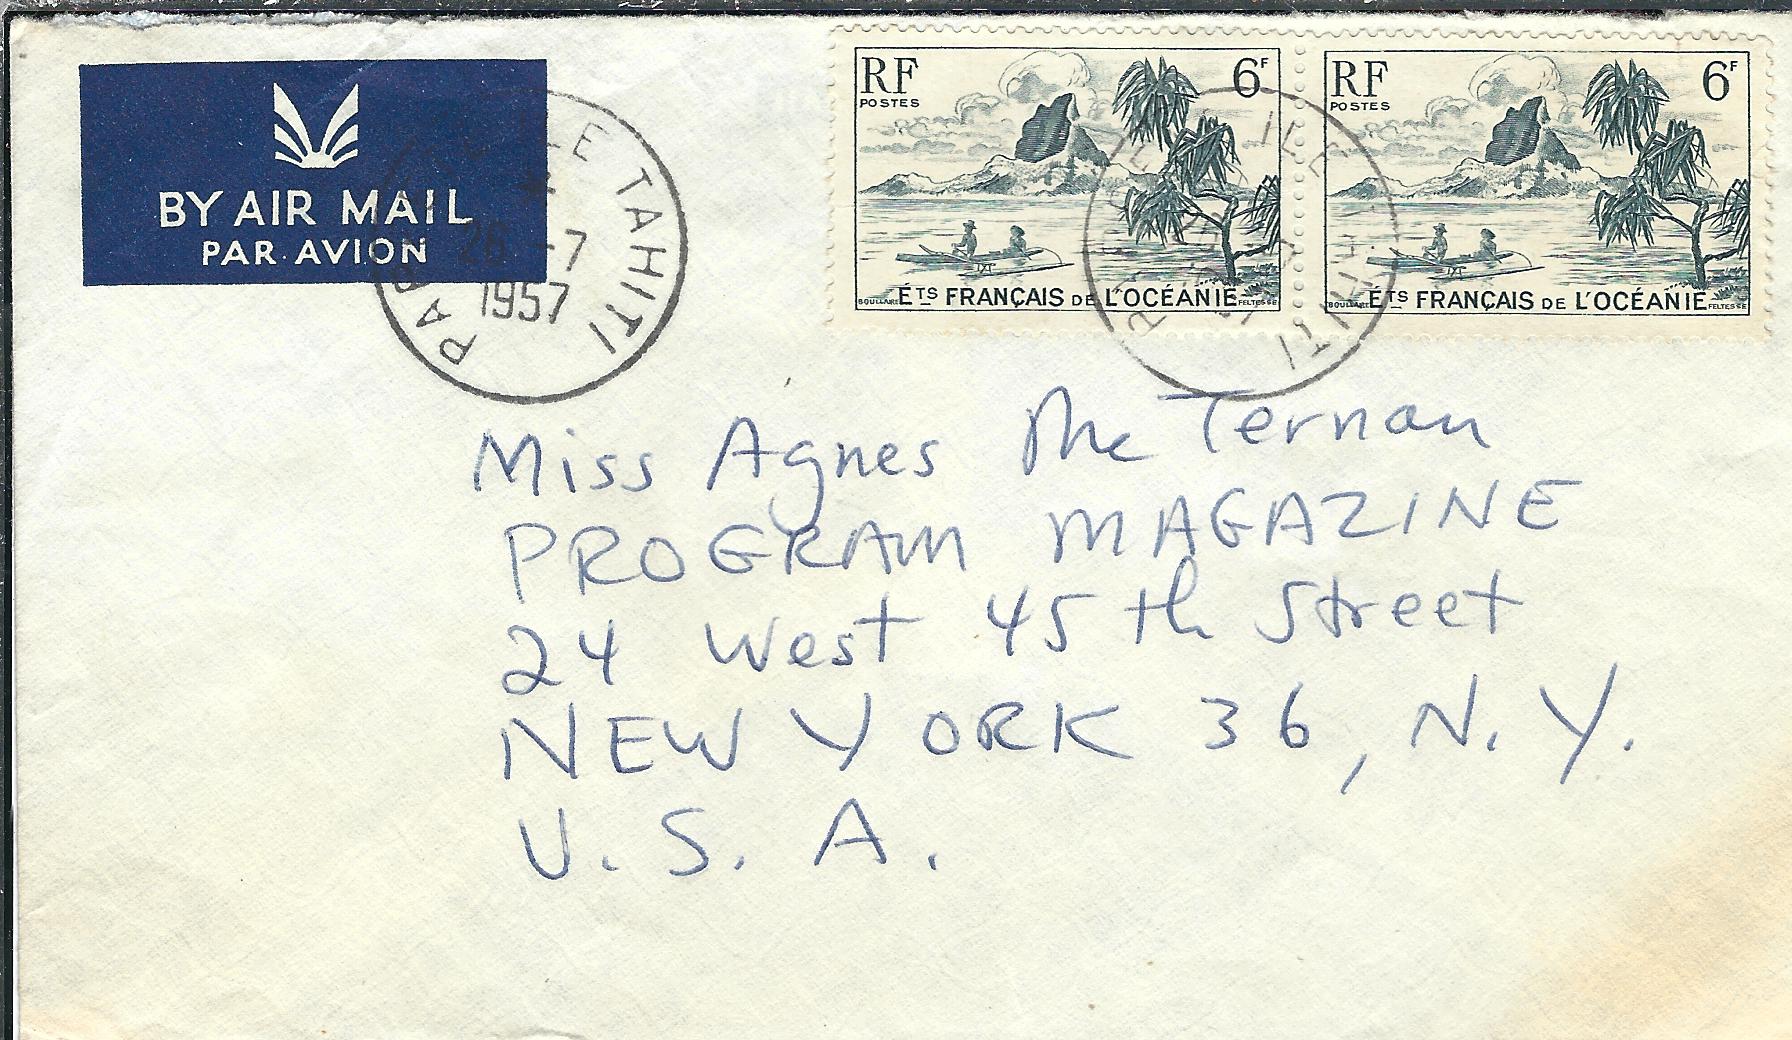 BY AIR MAIL
PAR·AVION
PAPEETE ILE TAHITI
26 -7
1957
RF 6F
POSTES
BOULLAIRE ÉTS FRANÇAIS DE L'OCÉANIE FELTESSE
RF 6F
POSTES
BOULLAIRE ÉTS FRANÇAIS DE L'OCÉANIE FELTESSE
Miss Agnes Mc Ternan
PROGRAM MAGAZINE
24 West 45th Street
NEW YORK 36, N.Y.
U.S.A.